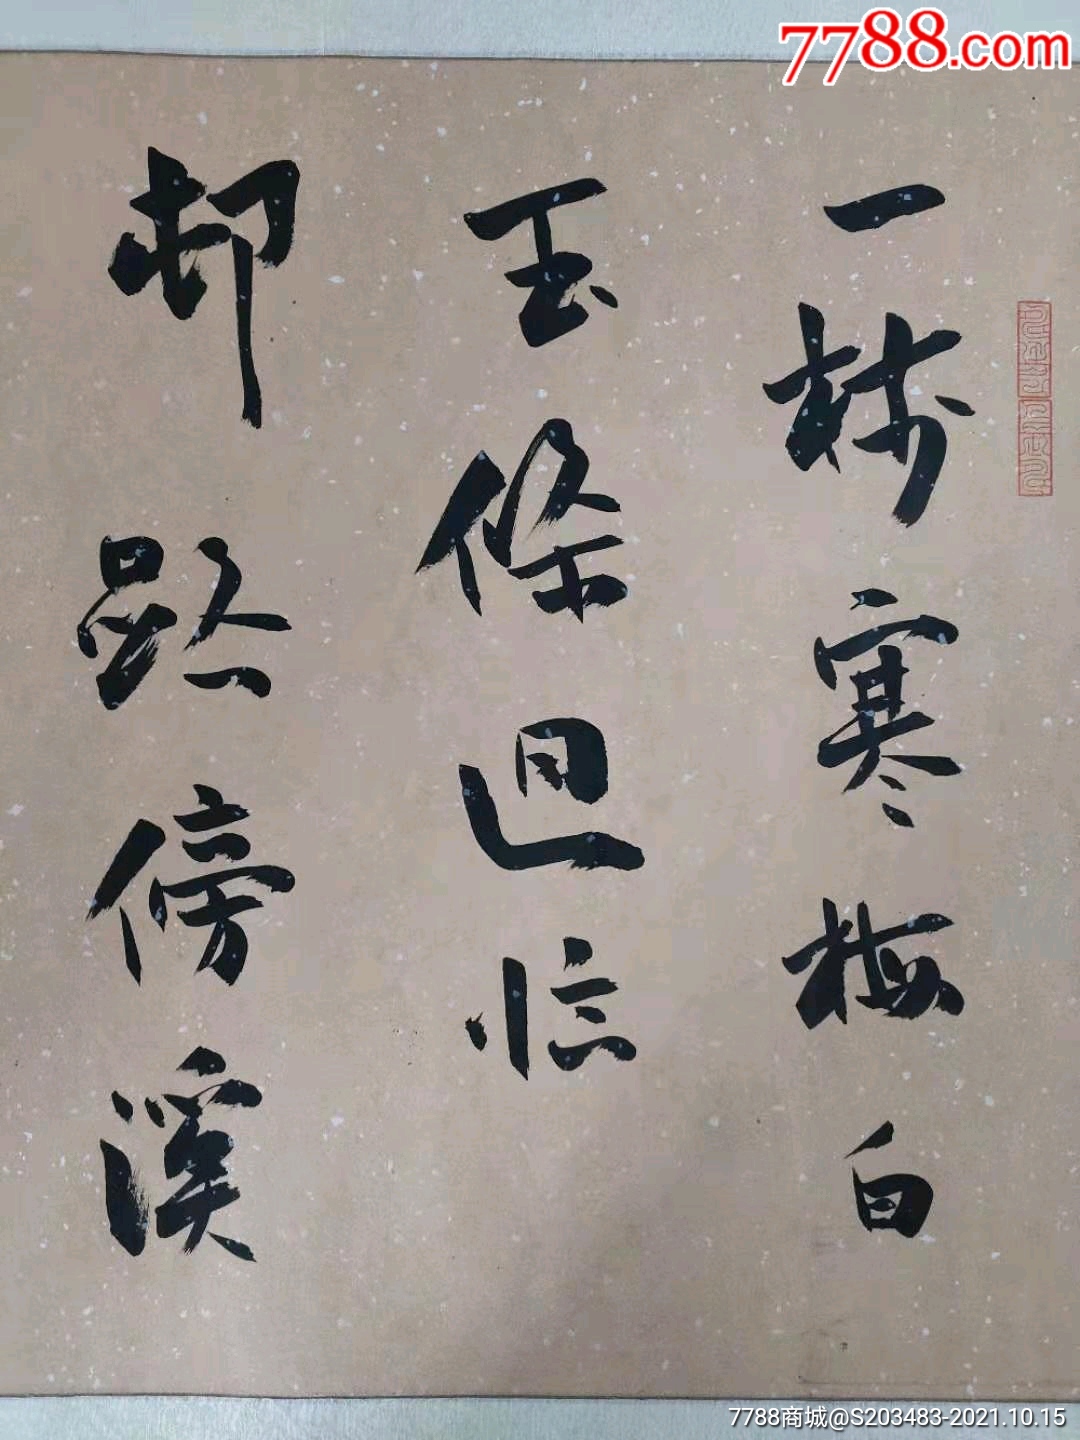 7788.com
一树寒梅白
玉條迴临
邨路傍溪
7788商城@S203483-2021.10.15